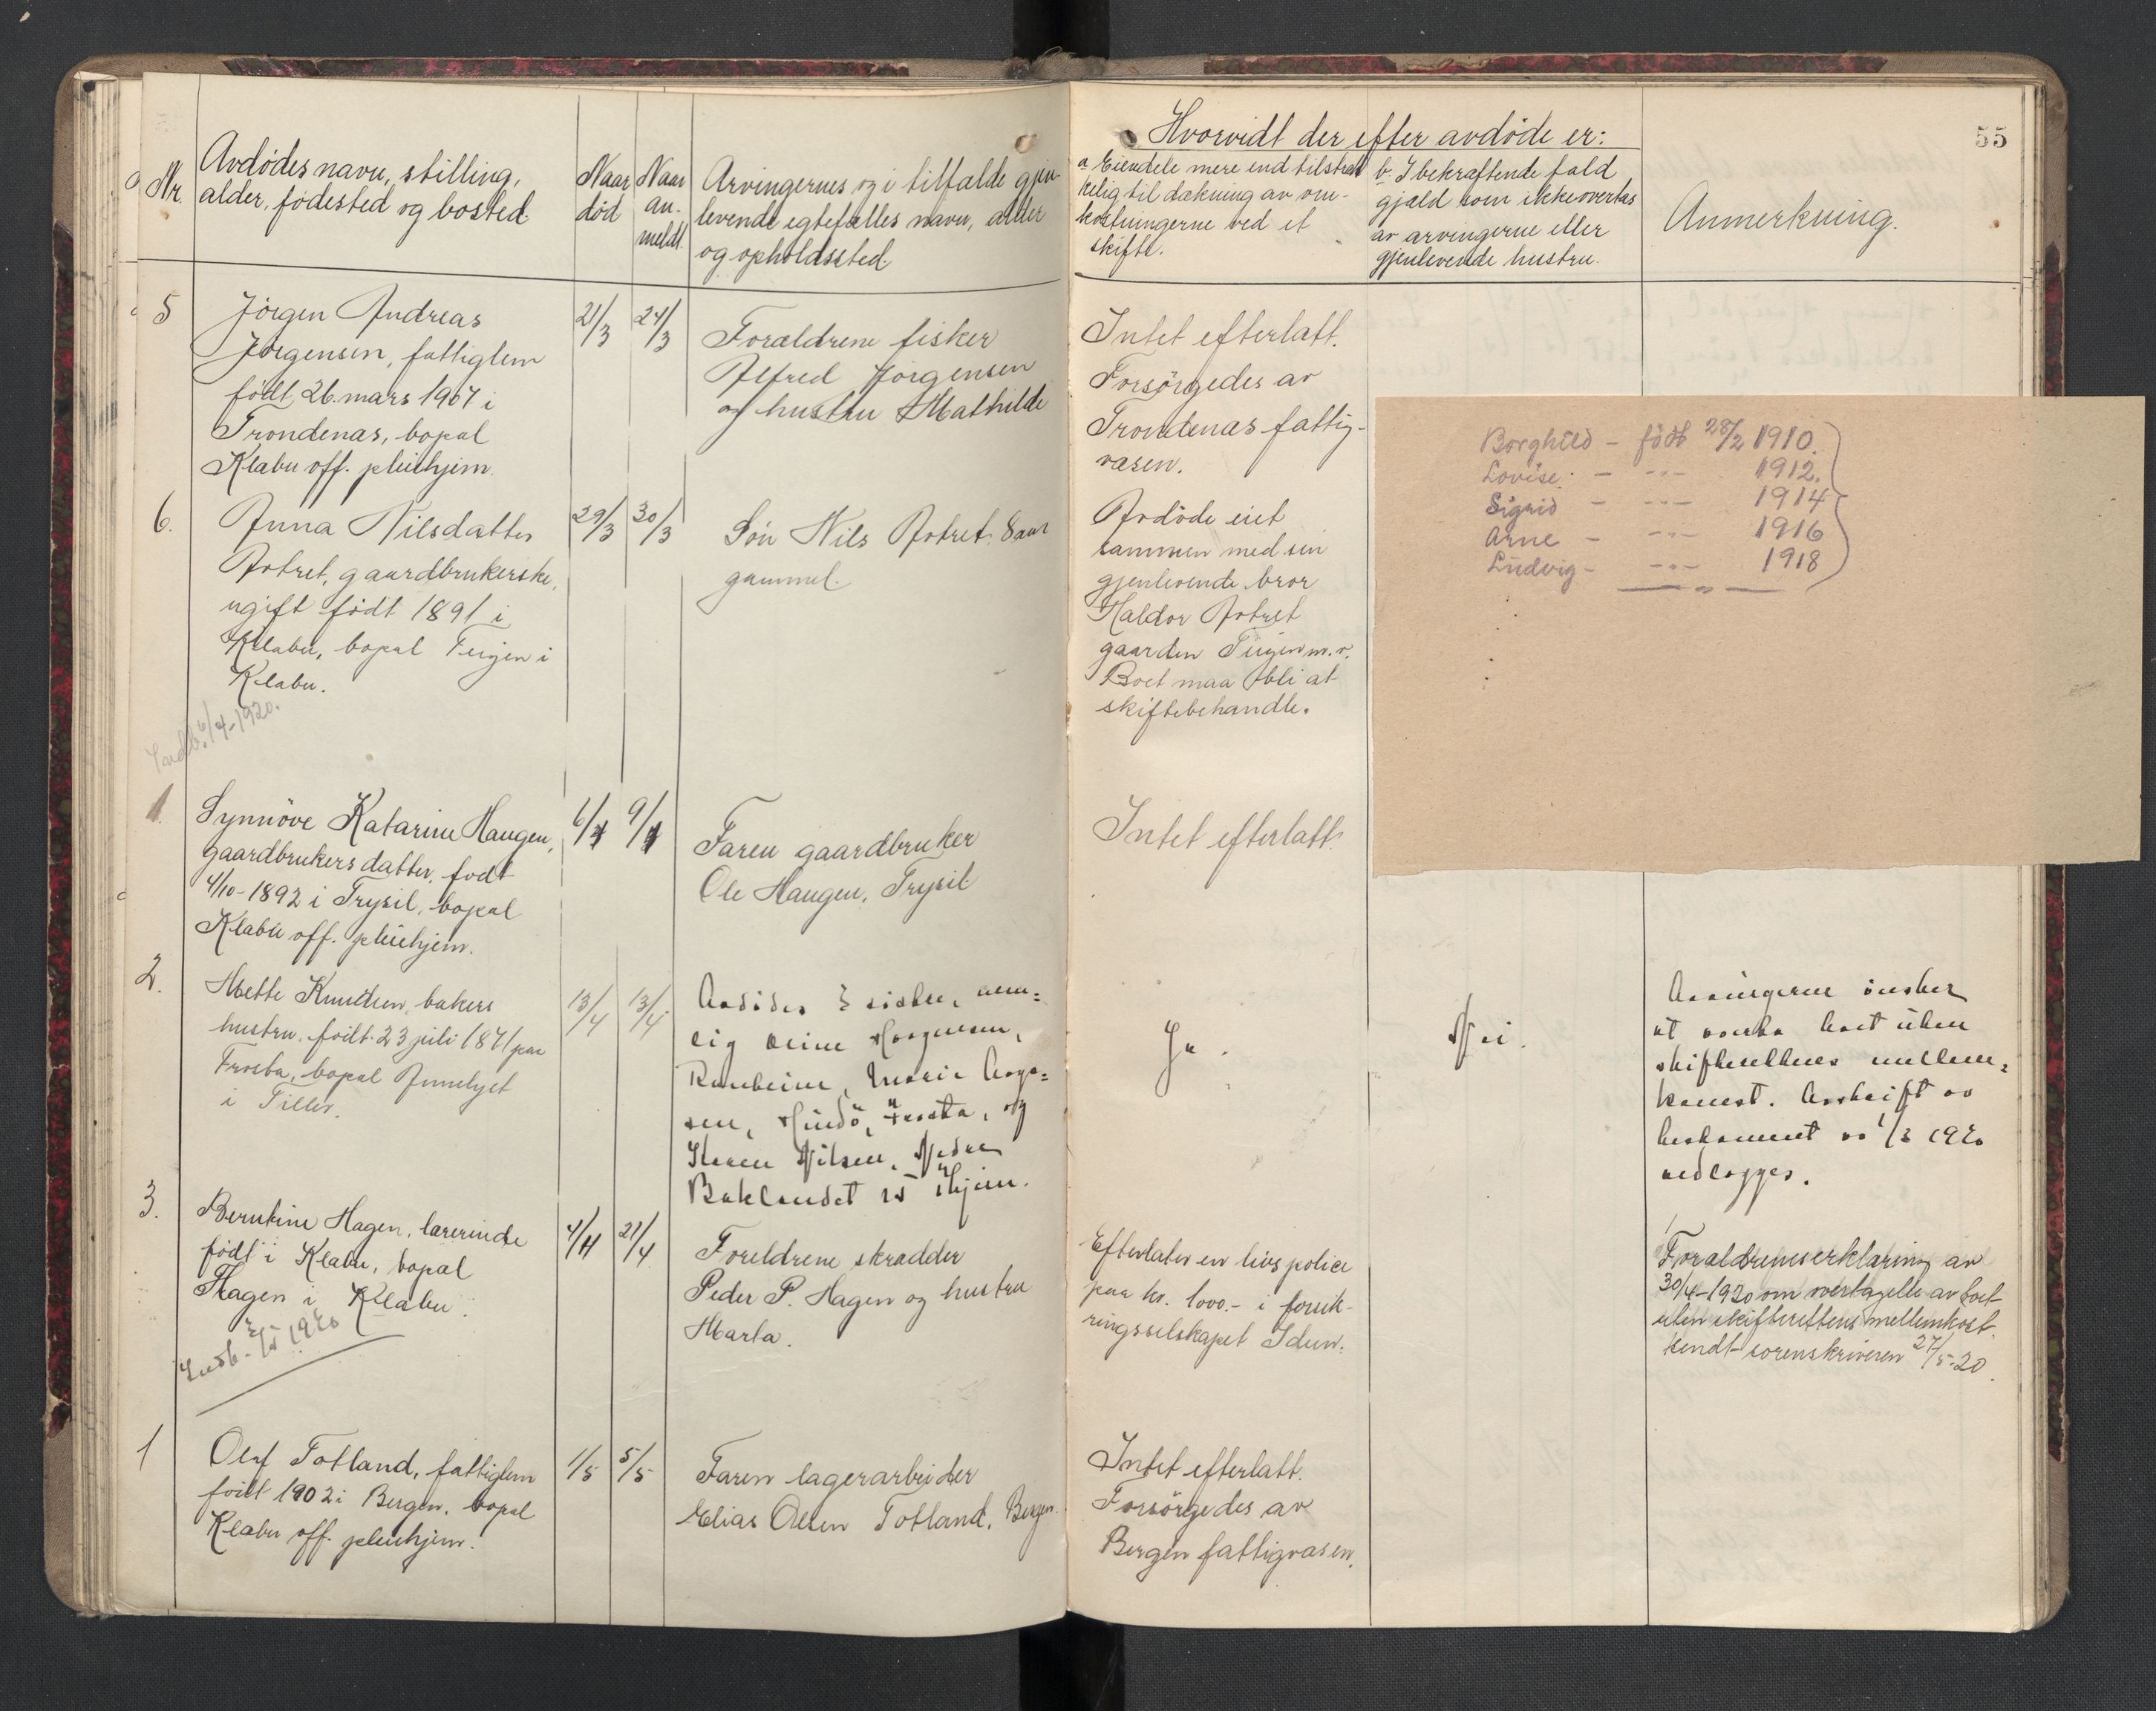 55
Nr.
Avdødes navn, stilling,
alder, fødested og bosted.
Naar
død
Naar
an-
meldt.
Arvingernes og i tilfælde gjen-
levende egtefælles navn, alder
og opholdssted.
Hvorvidt der efter avdøde er:
a. Eiendele mere end tilstræk-
kelig til dækning av om-
kostningerne ved et
skifte.
b. I bekræftende fald
gjæld som ikke overtas
av arvingerne eller
gjenlevende hustru.
Anmerkning.
5
Jörgen Andreas
Jörgensen, fattiglem
født 26. mars 1907 i
Trondenæs, bopæl
Klæbu off. pleiehjem.
21/3
24/3
Forældrene fisker
Alfred Jörgensen
og hustru Mathilde
Intet efterlatt.
Forsörgedes av
Trondenæs fattig-
væsen.
6.
Anna Nilsdatter
gaardbrukerske,
ugift født 1891 i
Klæbu, bopæl Teigen i
Klæbu.
29/3
30/3
Sön Nils 8 aar
gammel.
Avdöde eiet
sammen med sin
gjenlevende bror
Haldor
gaarden Teigen m.v.
Boet maa bli at
skiftebehandle.
Indb. 6/4-1920.
Borghild - född 28/2 1910.
Lovise: - -"- 1912.
Sigrid - -"- 1914
Arne - -"- 1916
Ludvig - -"- 1918
1.
Synnöve Katarine Haugen,
gaardbrukersdatter, født
4/10-1892 i Trysil, bopæl
Klæbu off. pleiehjem.
6/4
9/4
Faren gaardbruker
Ole Haugen, Trysil
Intet efterlatt.
2.
Mette Knudsen, bakers
hustru, født 23 juli 1871 paa
Frosta, bopæl
i Tiller.
13/4
13/4
Avdødes 3 søstre, nem=
lig
Ranheim, Marie Aage=
sen, Frosta, og
Nilsen, Nedre
Baklandet
Ja.
Nei.
Arvingerne önsker
at boet uten
skifterettens mellem=
komst. Avskrift av
testament av 1/3 1920
vedlægges.
3.
Berntine Hagen, lærerinde
født i Klæbu, bopæl
Hagen i Klæbu.
4/4
21/4
Foreldrene skrædder
Peder P. Hagen og hustru
Marta.
Efterlater en livspolice
paa kr. 1000.- i forsik-
ringsselskapet Idun.
Forældrenes erklæring av
30/4-1920 om overtagelse av boet
uten skifterettens mellemkost.
sendt sorenskriveren 27/5-20.
Indb. 3/5 1920
1
Olaf Totland, fattiglem
födt 1902 i Bergen, bopæl
Klæbu off. pleiehjem.
1/5
5/5
Faren lagerarbeider
Elias Olsen Totland, Bergen.
Intet efterlatt.
Forsörgedes av
Bergen fattigvæsen.